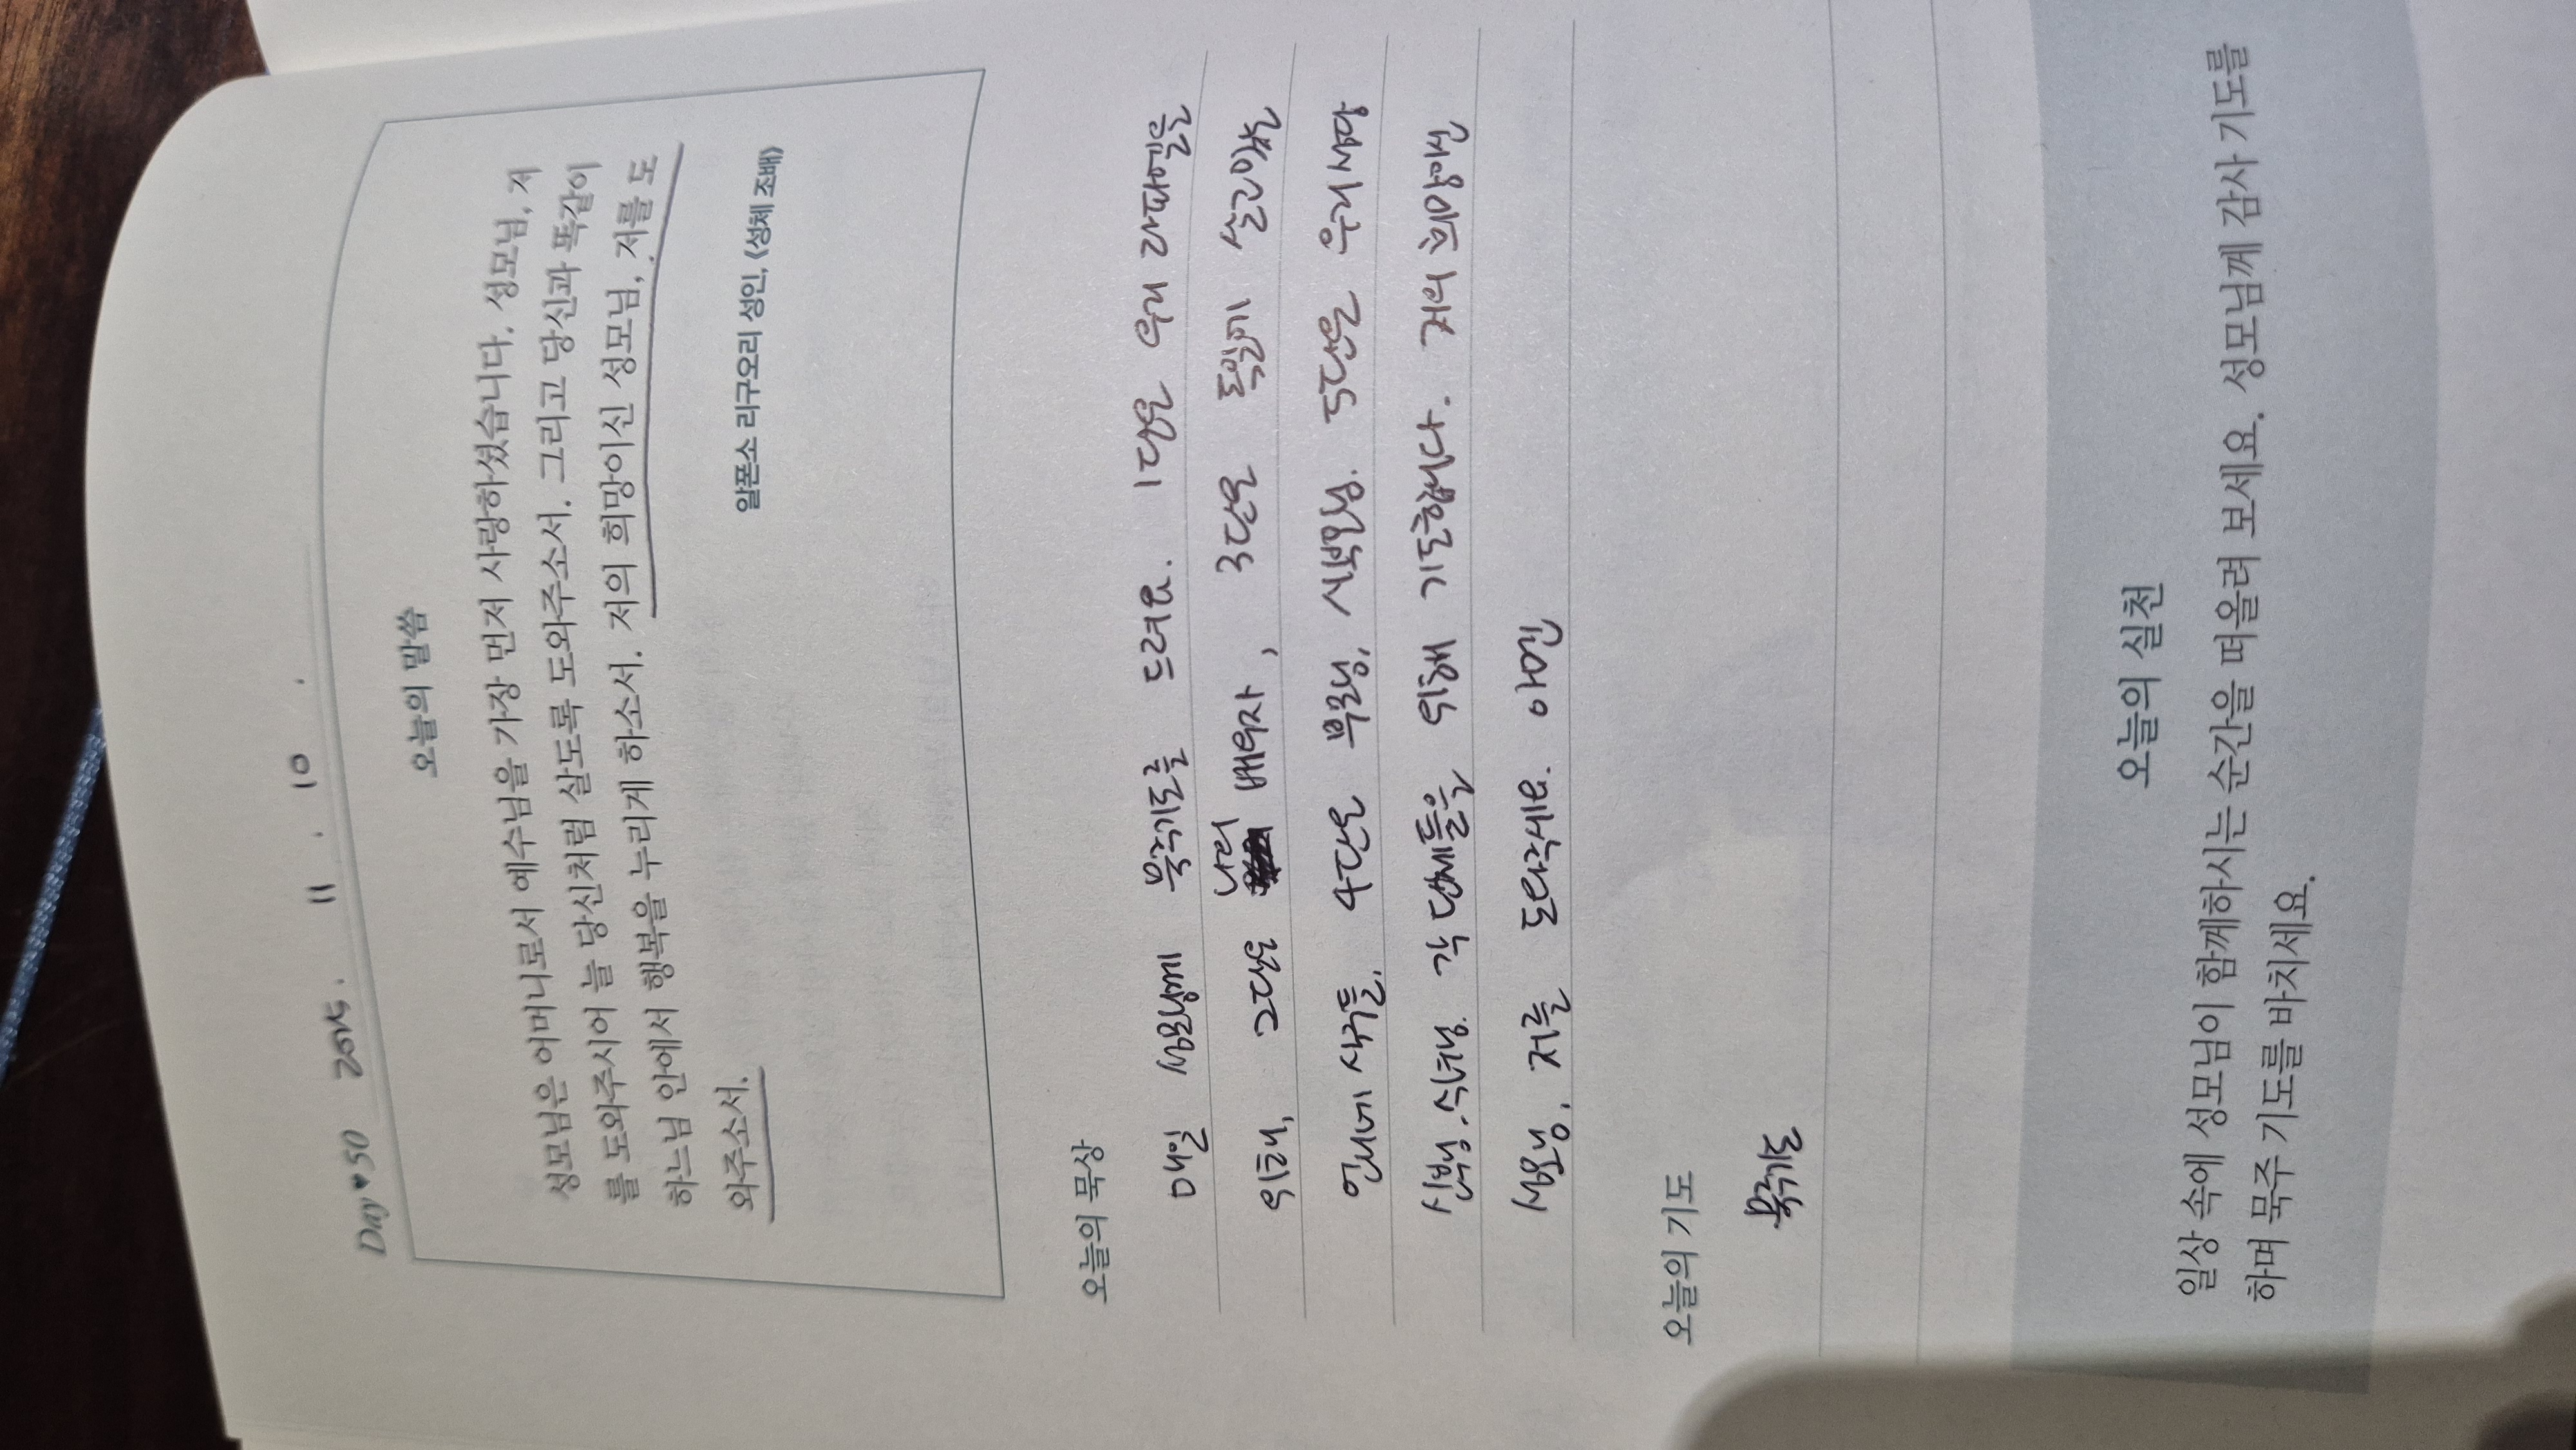 Day ♥ 50 2025. 11. 10.
오늘의 말씀
성모님은 어머니로서 예수님을 가장 먼저 사랑하셨습니다. 성모님, 저
를 도와주시어 늘 당신처럼 살도록 도와주소서. 그리고 당신과 똑같이
하느님 안에서 행복을 누리게 하소서. 저의 희망이신 성모님, 저를 도
와주소서.
알폰소 리구오리 성인, 《성체 조배》
오늘의 묵상
매일 성모님께 묵주기도를 드려요. 1단은 우리 라파엘을
위해, 2단은 나의 배우자, 3단은 독일에 살고있는
언니네 식구들, 4단은 부모님, 시부모님. 5단은 우리 본당
신부님·수녀님. 각 단체들을 위해 기도합니다. 저의 희망이신
성모님, 저를 도와주세요. 아멘
오늘의 기도
묵주기도
오늘의 실천
일상 속에 성모님이 함께하시는 순간을 떠올려 보세요. 성모님께 감사 기도를
하며 묵주 기도를 바치세요.